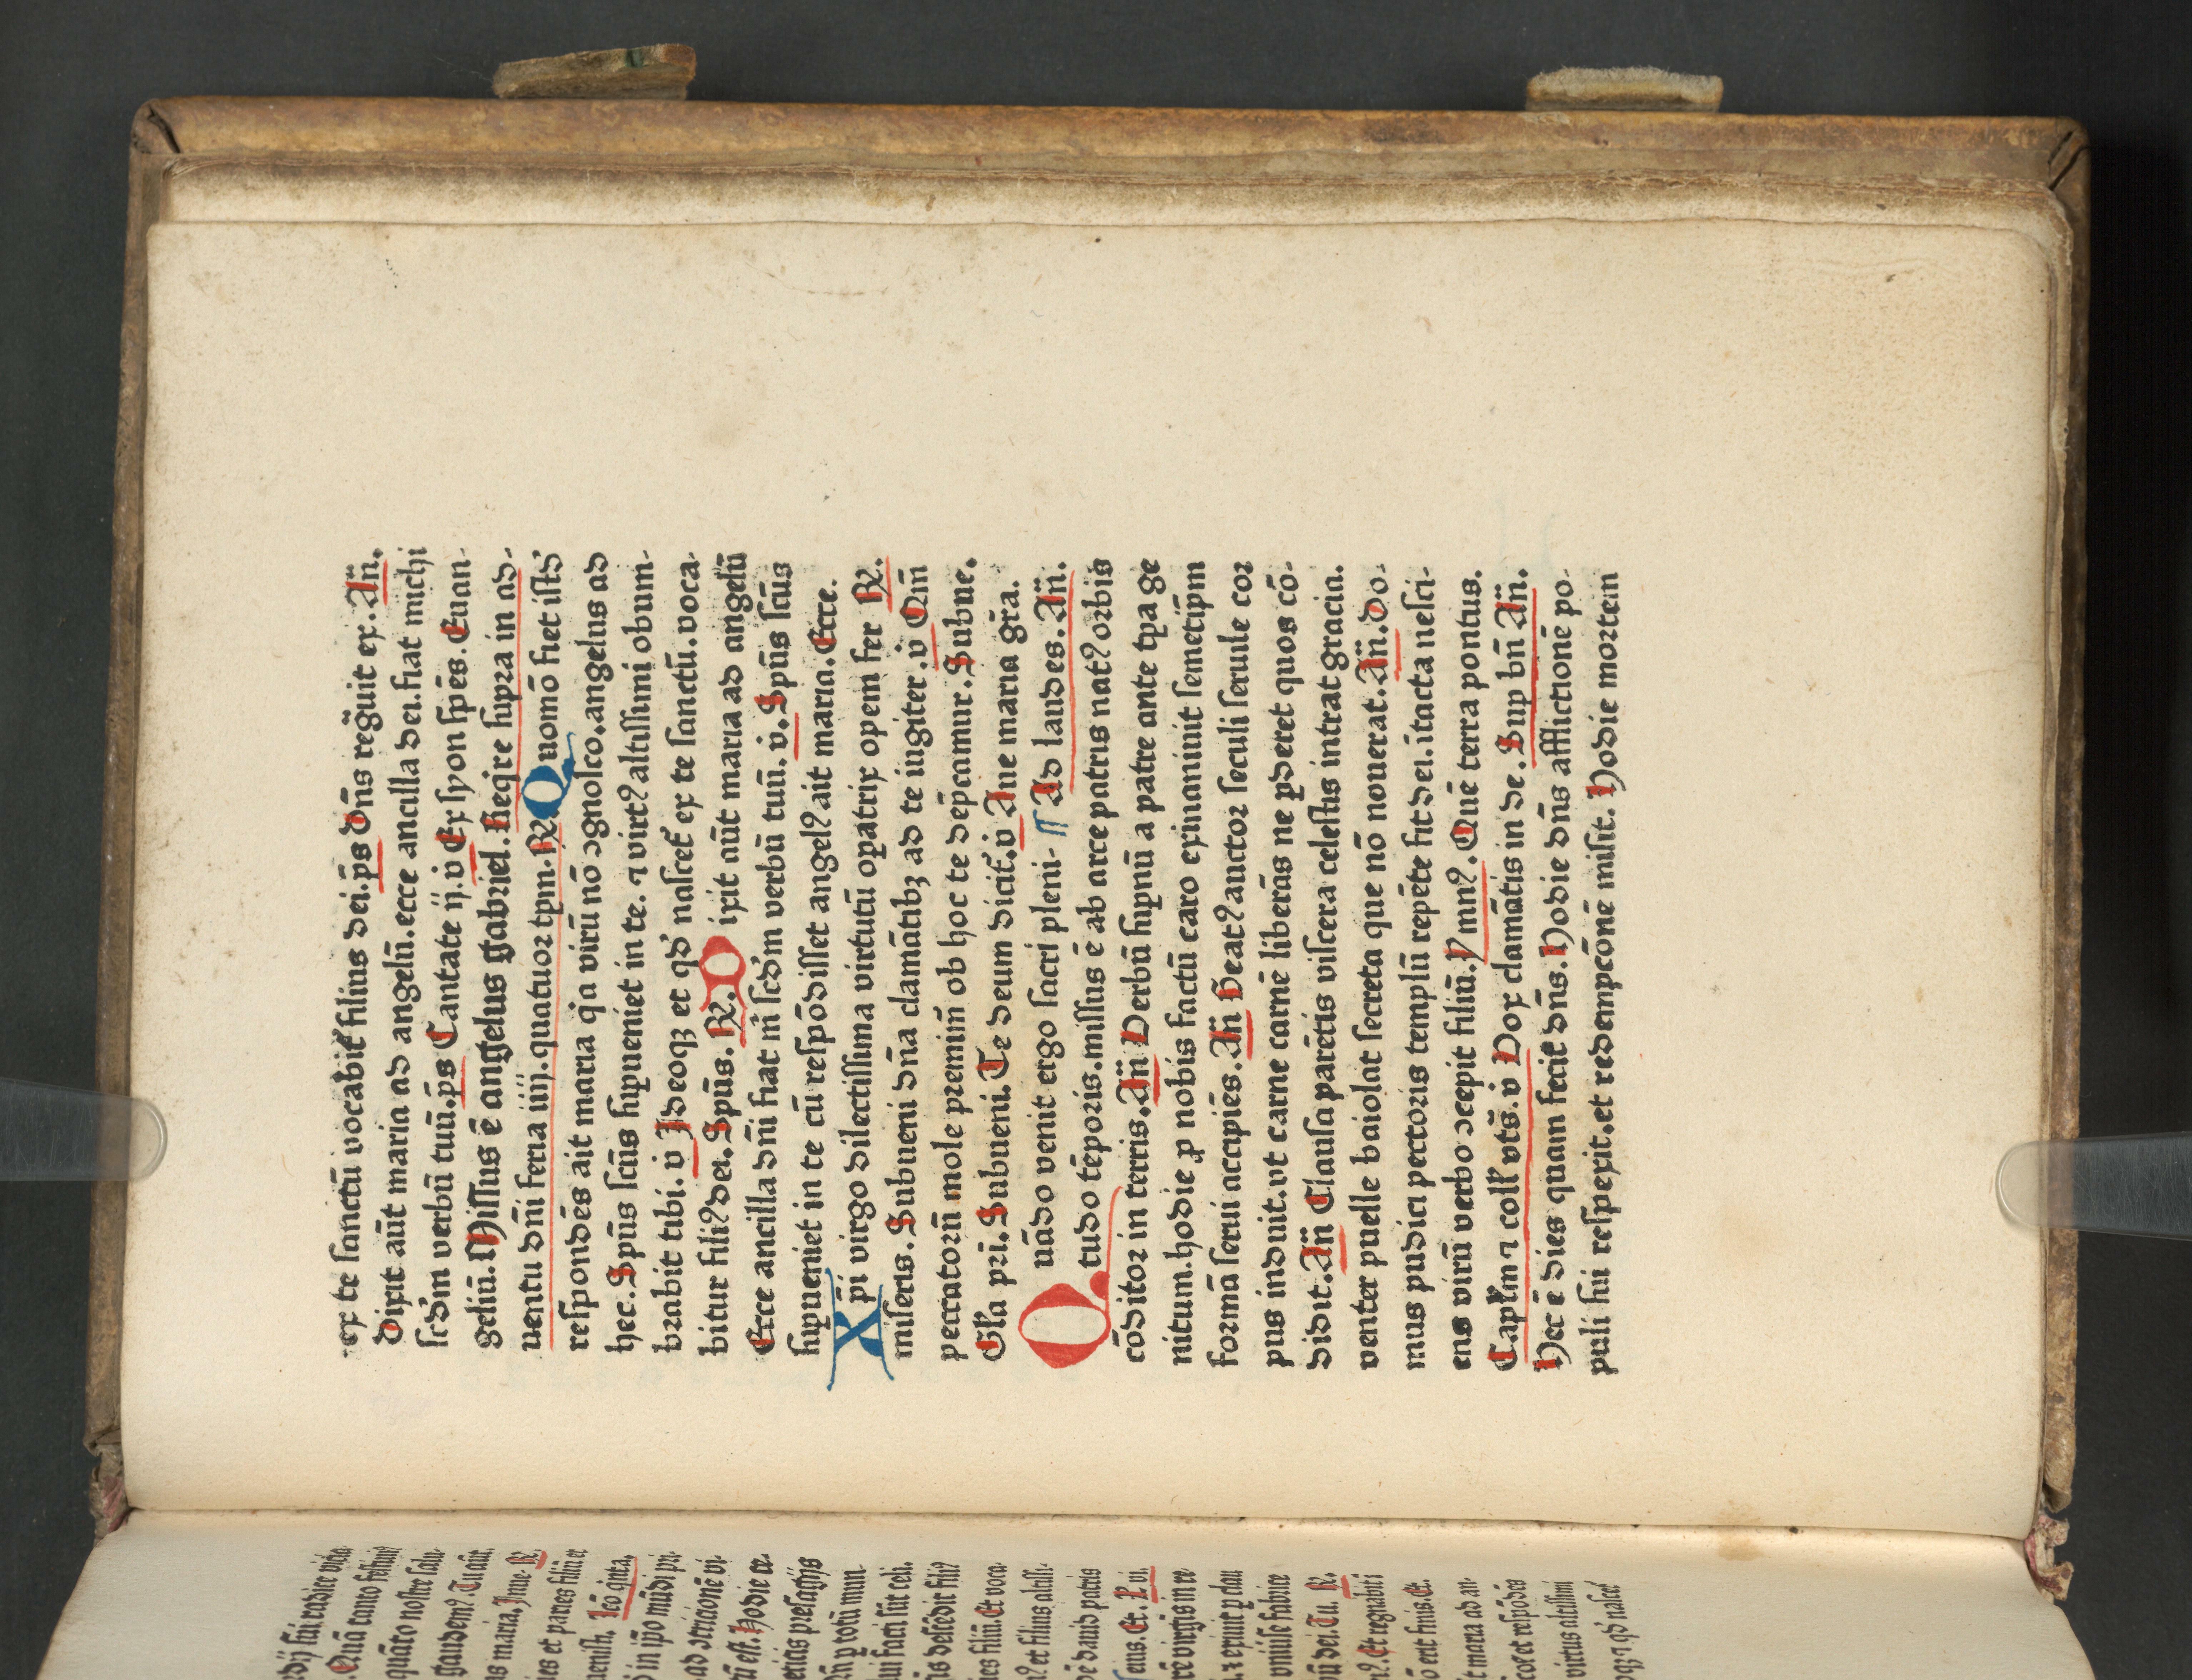 quāto nostre salu-
as maria. Inne. R̃.
ies et paries filiū et
in ip̄o mūdi pri-
rū est. Hodie ce-
eticis presagijs
p totū mun-
ui facti sūt celi.
is descēdit fili⁹
ies filiū. Et voca-
et filius altissi-
dauid patris
ū dei. Tu. R̃.
Et regnabit i
erit finis. Et.
maria ad an-
et respōdēs
virtus altissimi
ex te sanctū vocabit᷑ filius dei. p̄s Dn̄s reg̃uit ex. An̄.
Dixit aūt maria ad angelū. ecce ancilla dei. fiat michi
scd̓m verbū tuū. p̄s Cantate ij. v̇ Ex syon sp̄es. Euan-
geliū. Missus ē angelus gabriel. Reqͥre supra in ad-
uentu dn̄i feria iiij. quatuor tpm̄. R̃. Quomō fiet istd̓
respondēs ait maria qͥa virū nō ꝯgnosco. angelus ad
hec. Spūs scūs supueniet in te. ⁊ virt⁹ altissimi obum-
brabit tibi. v̇ Ideoqꝫ et qd̓ nascet᷑ ex te sanctū. voca-
bitur fili⁹ dei. Spūs. R̃. Dixit aūt maria ad angelū
Ecce ancilla dn̄i fiat m̄ scd̓m verbū tuū. v̇. Spūs scūs
supueniet in te cū respōdisset angel⁹ ait maria. Ecce.
Xp̄i virgo dilectissima virtutū opatrix opem fer R̃.
miseris. Subueni dn̄a clamātibꝫ ad te iugiter. v̇ Qm̄
peccatorū mole premim̄ ob hoc te dep̄camur. Subue.
Gl̓a pr̄i. Subueni. Te deum dicit᷑. v̇ Aue maria gr̄a.
Quādo venit ergo sacri pleni- ¶ Ad laudes. An̄.
tudo tēporis. missus ē ab arce patris nat⁹ orbis
cōditor in terris. An̄ Verbū supnū a patre ante tpa ge
nitum. hodie ꝓ nobis factū caro exinaniuit semetip̄m
formā serui accipiēs. An̄ Beat⁹ auctor seculi seruile cor
pus induit. vt carne carnē liberās ne ꝑderet quos cō-
didit. An̄ Clausa parētis viscera celestis intrat gracia.
venter puelle baiolat secreta que nō nouerat. An̄. Do-
mus pudici pectoris templū repēte fit dei. ītacta nesci-
ens virū verbo ꝯcepit filiū. Ymn⁹. Quē terra pontus.
Capl̓m ⁊ coll̓ vts̄. v̇ Vox clamātis in de. Sup bn̄ An̄.
Hec ē dies quam fecit dn̄s. Hodie dn̄s afflictionē po-
puli sui respexit. et redempcōnē misit. Hodie mortem